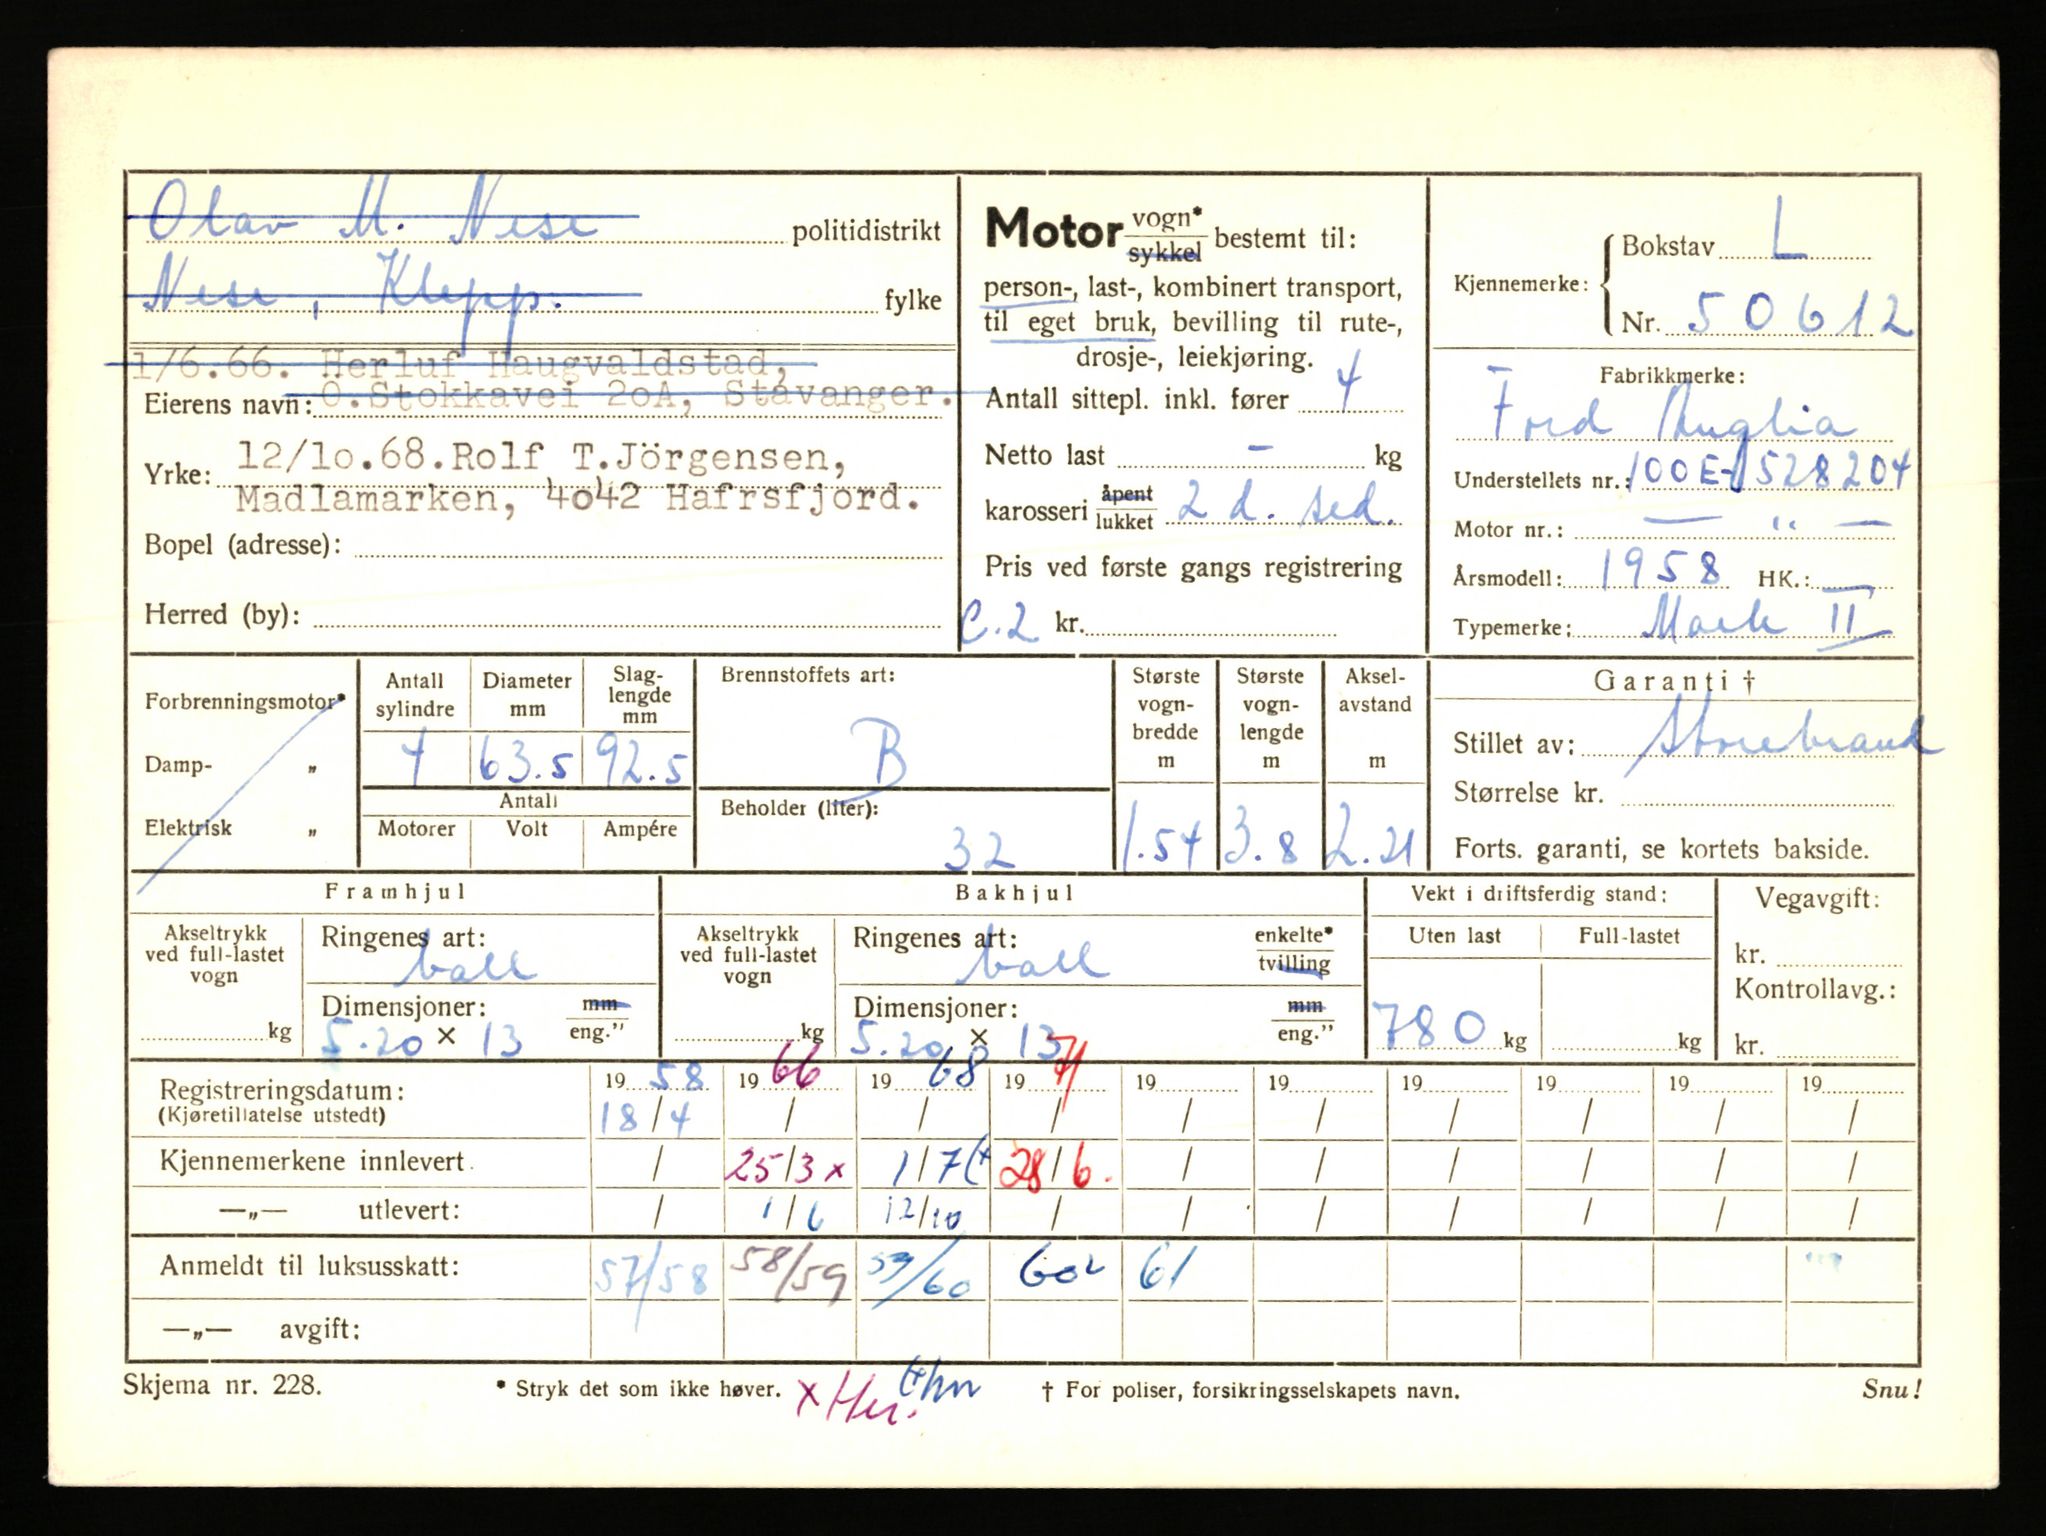 Olav M. Nese politidistrikt
Nese, Klepp. fylke
1/6.66. Herluf Haugvaldstad,
Eierens navn: O.Stokkavei 2oA, Stavanger.
12/1o.68.Rolf T.Jörgensen,
Yrke:
Madlamarken, 4o42 Hafrsfjord.
Bopel (adresse):
Herred (by):
Motor vogn* / sykkel bestemt til:
person-, last-, kombinert transport,
til eget bruk, bevilling til rute-,
drosje-, leiekjøring.
Antall sittepl. inkl. fører 4
Netto last – kg
karosseri åpent / lukket 2 d. sed.
Pris ved første gangs registrering
C.2 kr.
Kjennemerke: Bokstav L
Nr. 50612
Fabrikkmerke:
Ford Anglia
Understellets nr.: 100E-1528204
Motor nr.: — " —
Årsmodell: 1958 HK.: —
Typemerke: Mark II
Forbrenningsmotor*
Damp- „
Elektrisk „
Antall sylindre Diameter mm Slag-lengde mm
4 63.5 92.5
Antall
Motorer Volt Ampére
Brennstoffets art:
B
Beholder (liter):
32
Største vogn-bredde m Største vogn-lengde m Aksel-avstand m
1.54 3.8 2.21
Garanti †
Stillet av: Storebrand
Størrelse kr.
Forts. garanti, se kortets bakside.
Framhjul
Akseltrykk ved full-lastet vogn
kg
Ringenes art:
ball
Dimensjoner: mm / eng."
5.20 × 13
Bakhjul
Akseltrykk ved full-lastet vogn
kg
Ringenes art: enkelte* / tvilling
ball
Dimensjoner: mm / eng."
5.20 × 13
Vekt i driftsferdig stand:
Uten last Full-lastet
780 kg kg
Vegavgift:
kr.
Kontrollavg.:
kr.
Registreringsdatum: 1958 1966 1968 1971 19 19 19 19 19 19
(Kjøretillatelse utstedt) 18/4 / / / / / / / / /
Kjennemerkene innlevert. / 25/3 x 1/7 (+ 28/6. / / / / / /
—„— utlevert: / 1/6 12/10 / / / / / / /
Anmeldt til luksusskatt: 57/58 58/59 59/60 60² 61
—„— avgift:
Skjema nr. 228. * Stryk det som ikke høver. x Her. † For poliser, forsikringsselskapets navn. Snu!